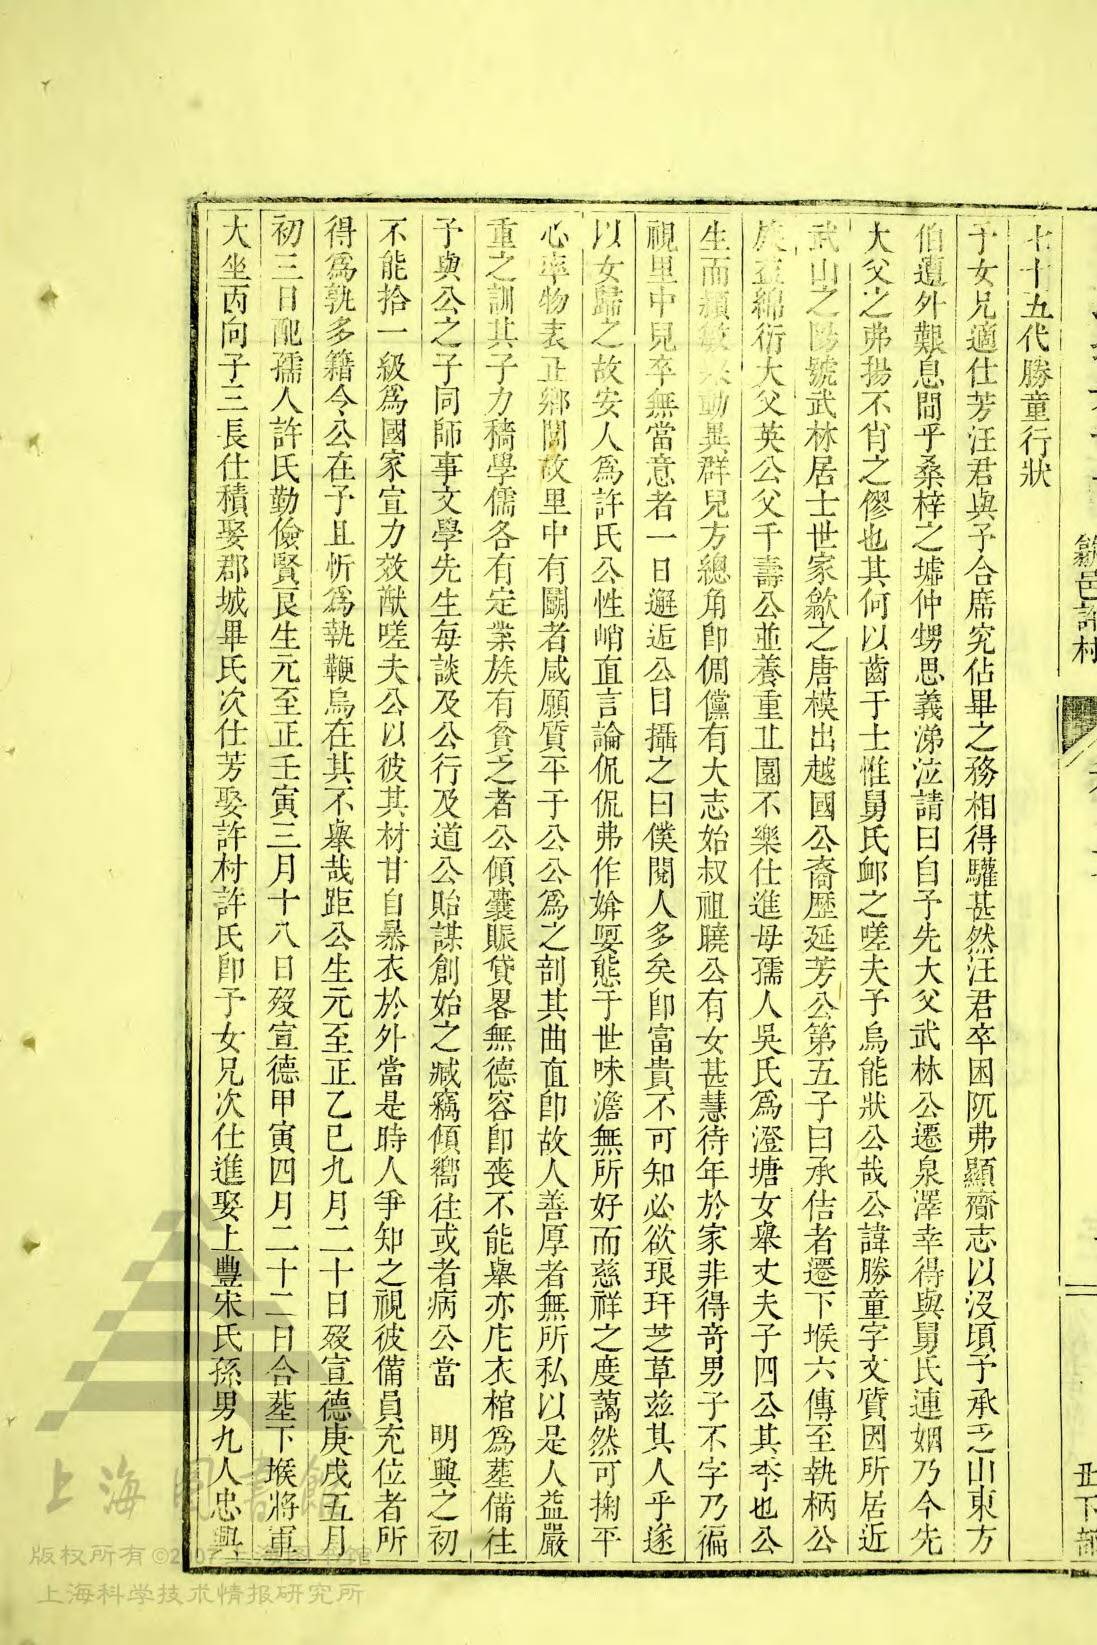 歙邑許村
世下諱
七十五代勝童行狀
予女兄適仕芳汪君與予合席究佔畢之務相得驩甚然汪君卒困阨弗顯齎志以沒頃予承乏山東方
伯遭外艱息間乎桑梓之墟仲甥思義涕泣請曰自予先大父武林公遷泉澤幸得與舅氏連姻乃今先
大父之弗揚不肖之僇也其何以齒于士惟舅氏卹之嗟夫予烏能狀公哉公諱勝童字文質因所居近
武山之陽號武林居士世家歙之唐模出越國公裔歷延芳公第五子曰承佶者遷下堠六傳至執柄公
益綿衍大父英公父千壽公並養重丘園不樂仕進母孺人吳氏爲澄塘女舉丈夫子四公其季也公
生而穎敏 動異群兒方總角卽倜儻有大志始叔祖曉公有女甚慧待年於家非得奇男子不字乃徧
視里中兒卒無當意者一日邂逅公目攝之曰僕閱人多矣卽富貴不可知必欲琅玕芝草兹其人乎遂
以女歸之故安人爲許氏公性峭直言論侃侃弗作媕婴態于世味澹無所好而慈祥之度藹然可掬平
心率物表正鄉閭故里中有鬬者咸願質平于公公爲之剖其曲直卽故人善厚者無所私以是人益嚴
重之訓其子力穡學儒各有定業族有貧乏者公傾囊賑貸畧無德容卽喪不能舉亦庀衣棺爲塟備往
予與公之子同師事文學先生每談及公行及道公貽謀創始之臧竊傾嚮往或者病公當　明興之初
不能拾一級爲國家宣力效猷嗟夫公以彼其材甘自暴衣於外當是時人爭知之視彼備員充位者所
得爲孰多籍令公在予且忻爲執鞭烏在其不舉哉距公生元至正乙巳九月二十日歿宣德庚戌五月
初三日配孺人許氏勤儉賢良生元至正壬寅三月十八日歿宣德甲寅四月二十二日合塟下堠將軍
大坐丙向子三長仕積娶郡城畢氏次仕芳娶許村許氏卽予女兄次仕進娶上豐宋氏孫男九人忠與
上海圖書館
版权所有©2007上海图书馆
上海科学技术情报研究所